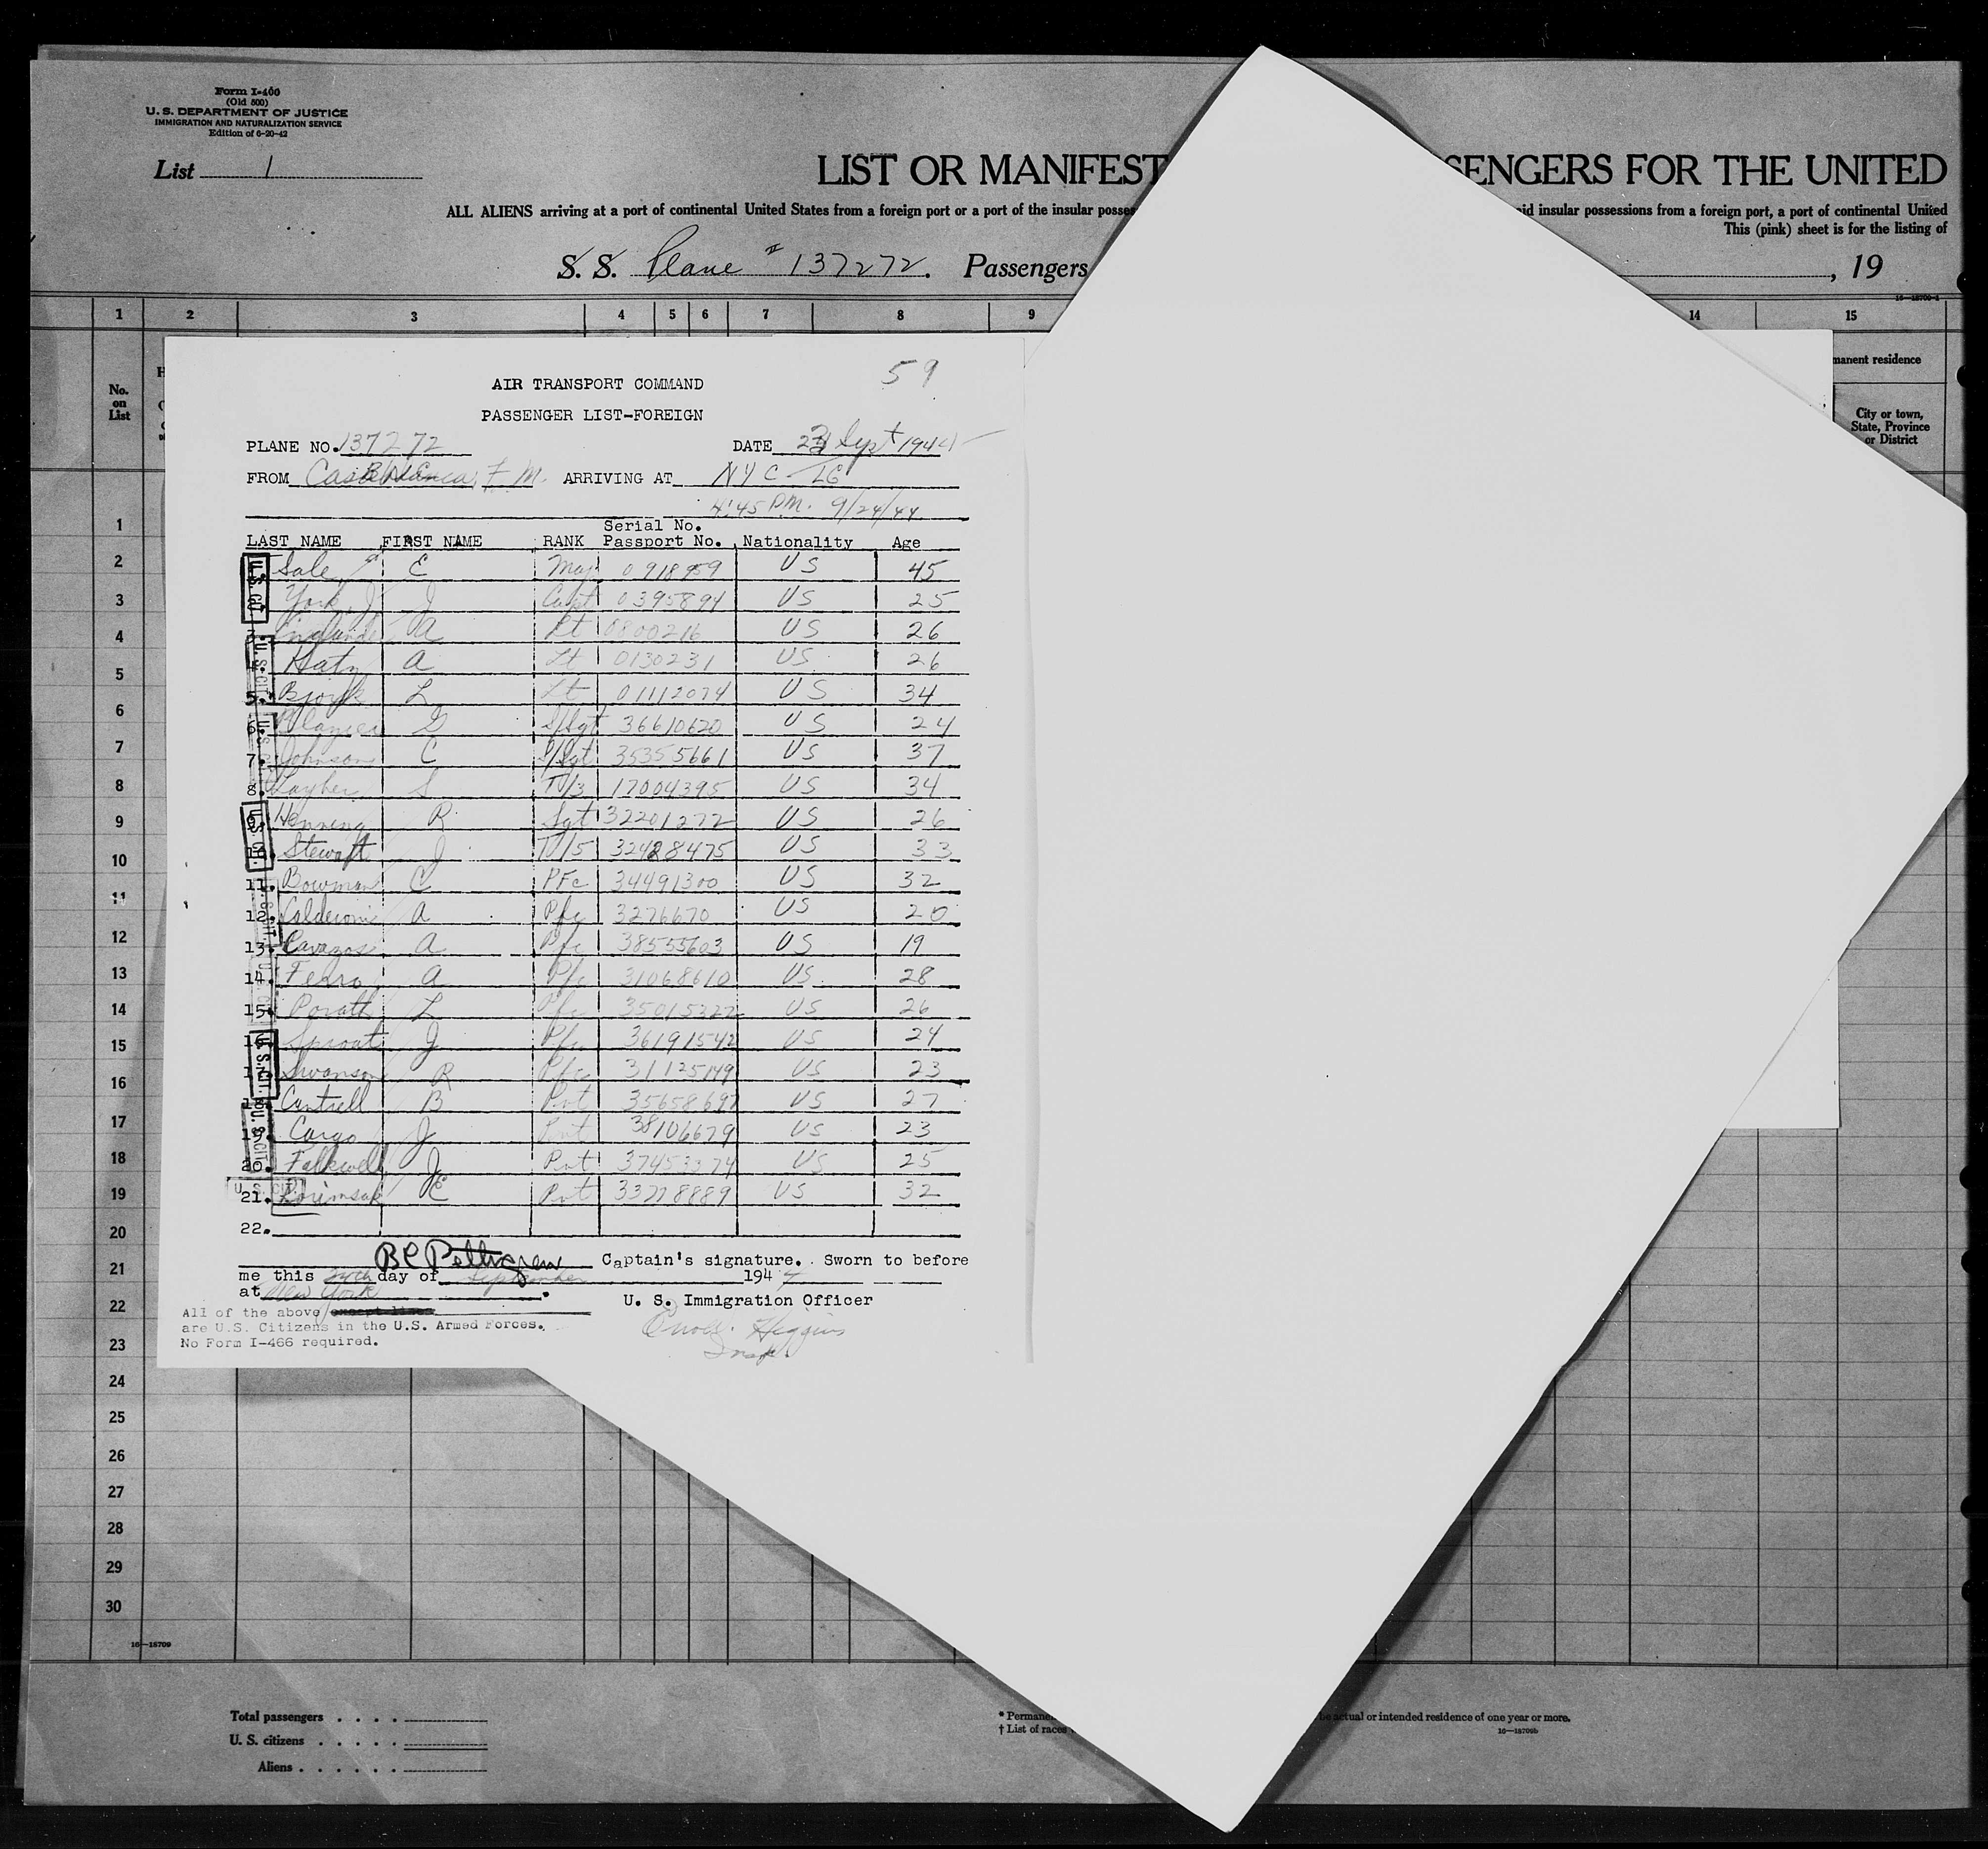 Form I-466
(Old 500)
U. S. DEPARTMENT OF JUSTICE
IMMIGRATION AND NATURALIZATION SERVICE
Edition of 6-20-42
List 1
LIST OR MANIFEST SENGERS FOR THE UNITED
ALL ALIENS arriving at a port of continental United States from a foreign port or a port of the insular posses aid insular possessions from a foreign port, a port of continental United
This (pink) sheet is for the listing of
S. S. Plane # 137272. Passengers , 19
1 2 3 4 5 6 7 8 9 14 15
No. on List
manent residence
City or town, State, Province or District
59
AIR TRANSPORT COMMAND
PASSENGER LIST-FOREIGN
PLANE NO. 137272 DATE 23 Sept 1944
FROM Casablanca, F. M. ARRIVING AT NYC
4:45 P.M. 9/24/44
Serial No.
LAST NAME FIRST NAME RANK Passport No. Nationality Age
Sale E Maj 0918959 US 45
York J Capt 0395894 US 25
3. A Lt 0800216 US 26
Katz A Lt 0130231 US 26
5. Bjork L Lt 01112074 US 34
6. G S/Sgt 36610620 US 24
7. Johnson C S/Sgt 35355661 US 37
8. Layher S T/3 17004395 US 34
Henning R Sgt 32201272 US 26
Stewart J T/5 32428475 US 33
11. Bowman C PFc 34491300 US 32
12. Calderoni A Pfc 3276670 US 20
13. Cavazos A Pfc 38555603 US 19
14. Ferro A Pfc 31068610 US 28
15. Porath L Pfc 35015322 US 26
16. Sprout J Pfc 36191542 US 24
17. Swanson R Pfc 31125149 US 23
18. Cantrell B Pvt 35658697 US 27
19. Cargo J Pvt 38106679 US 23
20. Falkwell J Pvt 37453374 US 25
21. E Pvt 33278889 US 32
22.
U.S. CIT.
B C Pettigrew Captain's signature. Sworn to before
me this 24th day of September 1944
at New York.
U. S. Immigration Officer
All of the above except lines
are U.S. Citizens in the U.S. Armed Forces.
No Form I-466 required.
Higgins
Insp.
1
2
3
4
5
6
7
8
9
10
11
12
13
14
15
16
17
18
19
20
21
22
23
24
25
26
27
28
29
30
16—18709
Total passengers . . . .
U. S. citizens . . . . .
Aliens . . . . . .
* Permane be actual or intended residence of one year or more.
† List of races
16—18709b